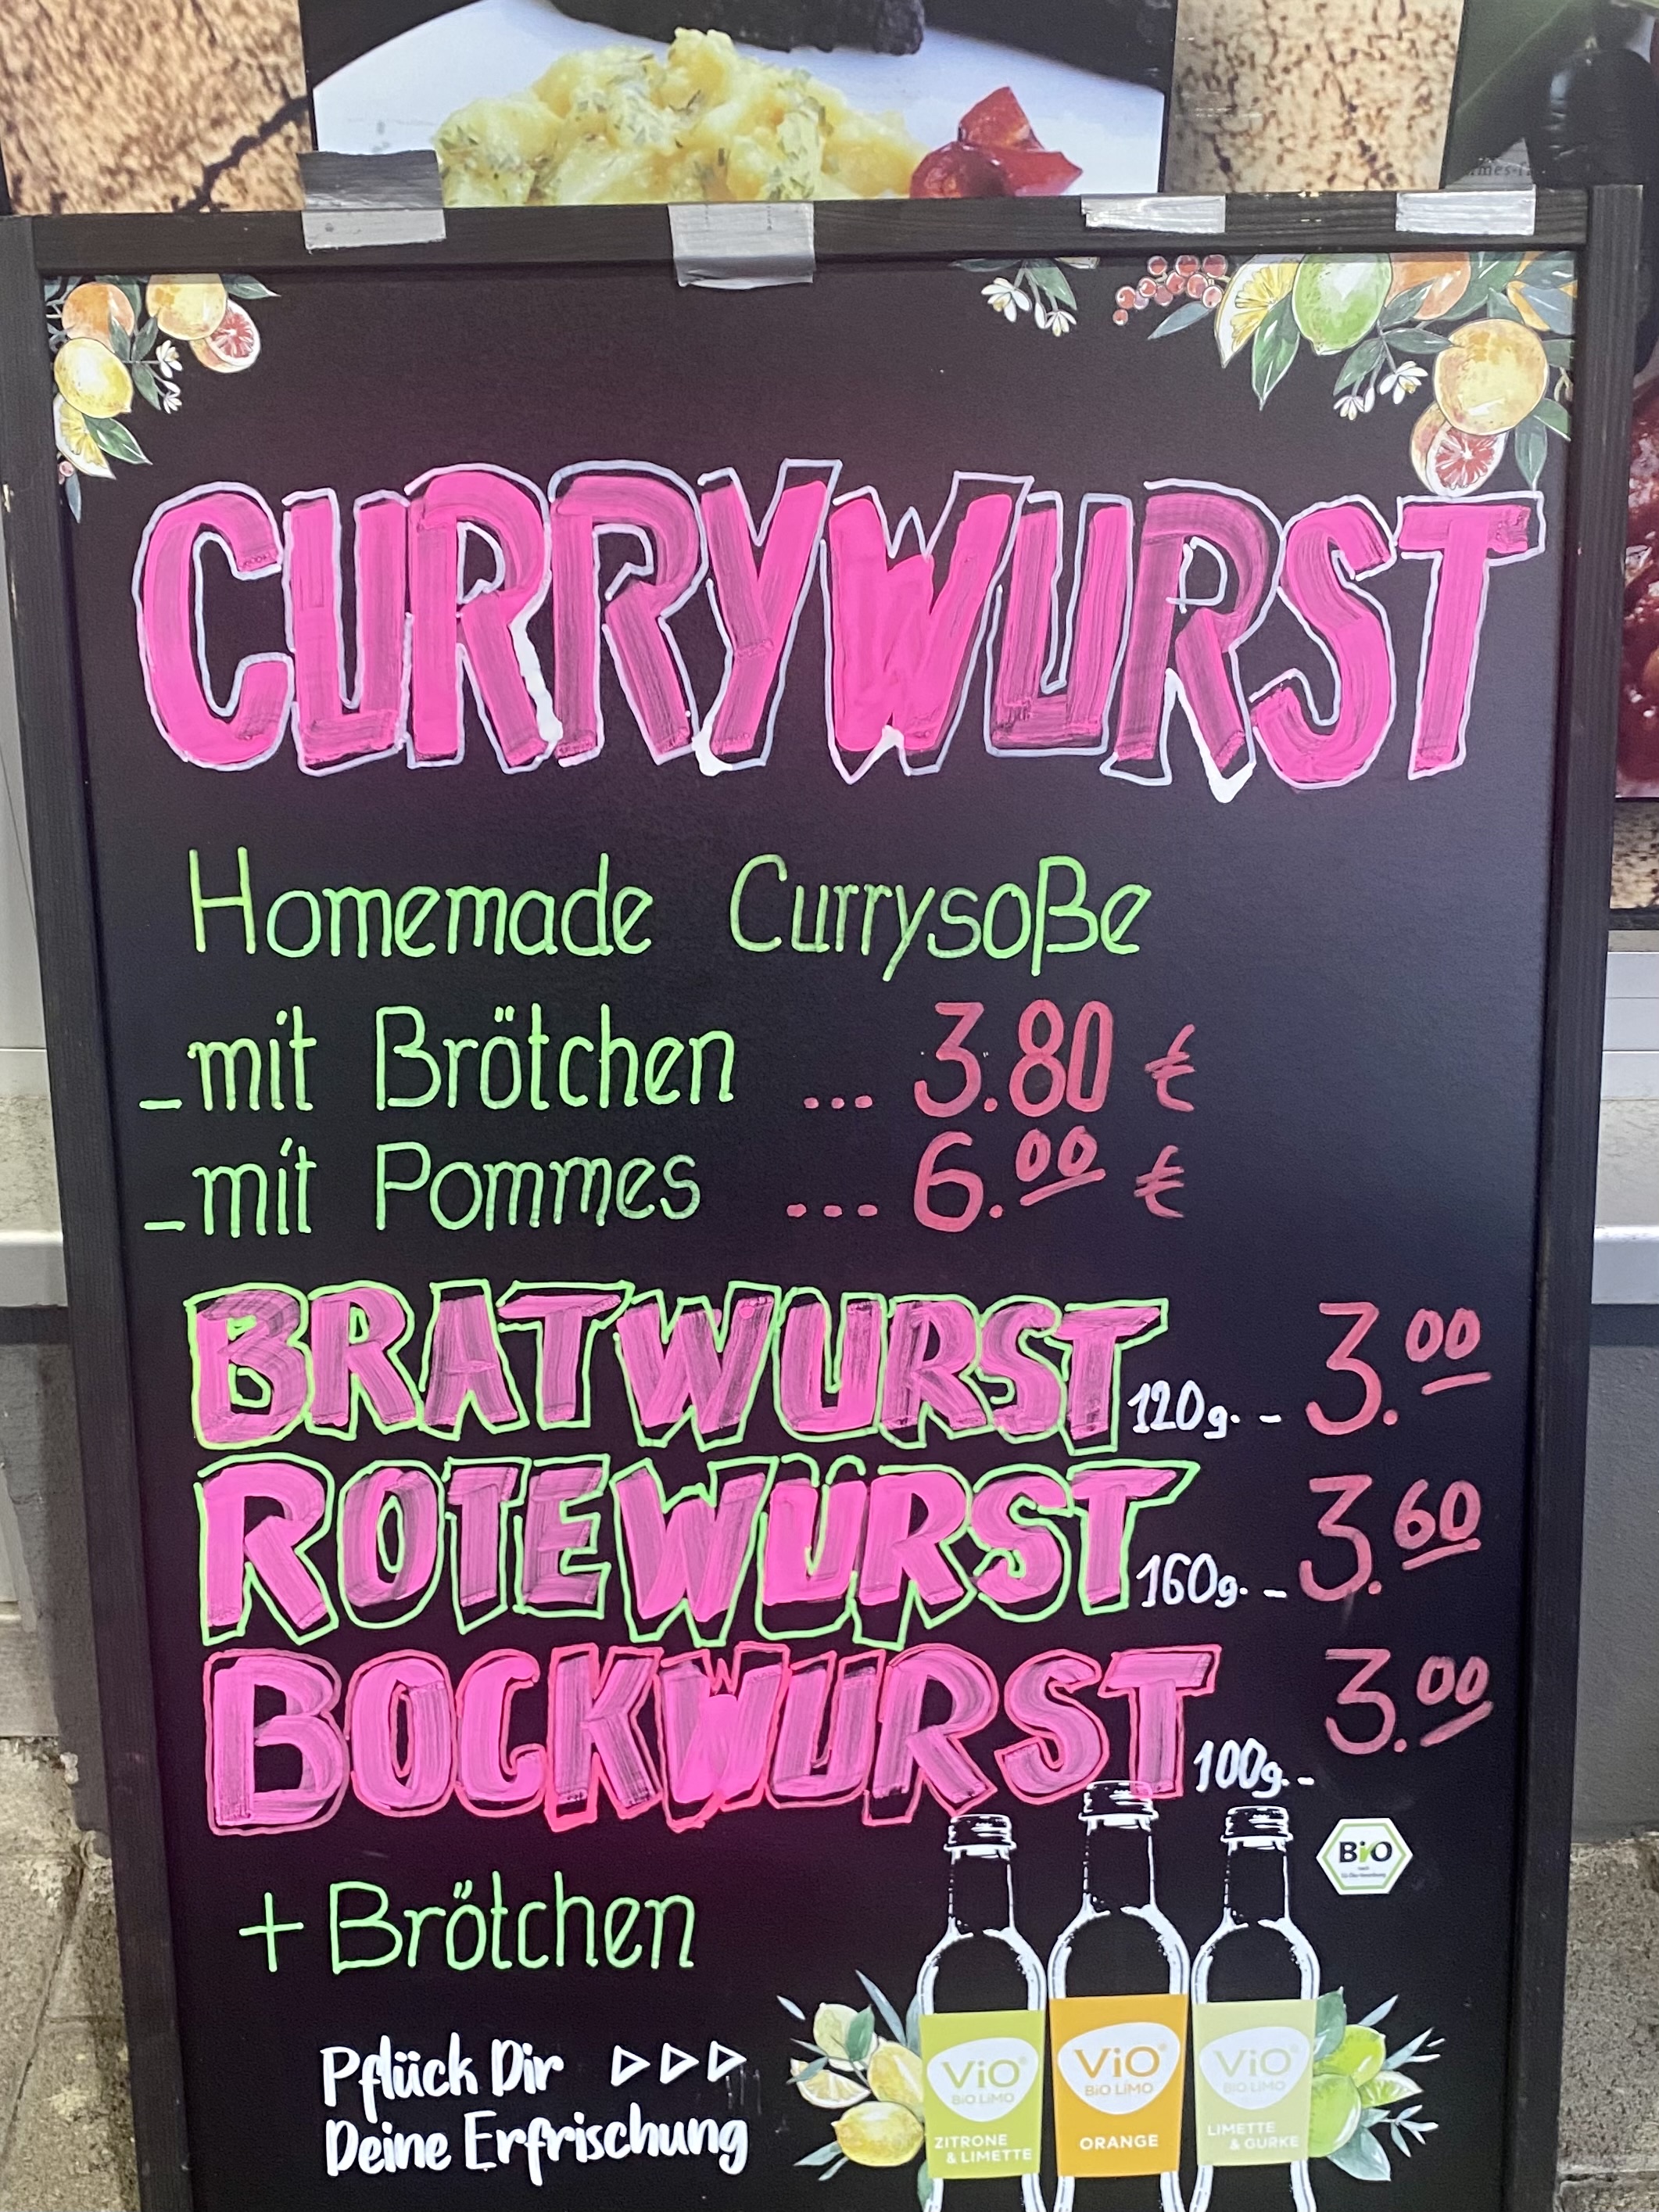 CURRYWURST
Homemade Currysoße
_ mit Brötchen ... 3.80 €
_ mit Pommes ... 6.00 €
BRATWURST 120g. - 3.00
ROTEWURST 160g. - 3.60
BOCKWURST 100g. - 3.00
+ Brötchen
BiO
Pflück Dir ▷▷▷
Deine Erfrischung
ViO®
BiO LiMO
ZITRONE
& LIMETTE
ViO®
BiO LiMO
ORANGE
ViO®
BiO LiMO
LIMETTE
& GURKE